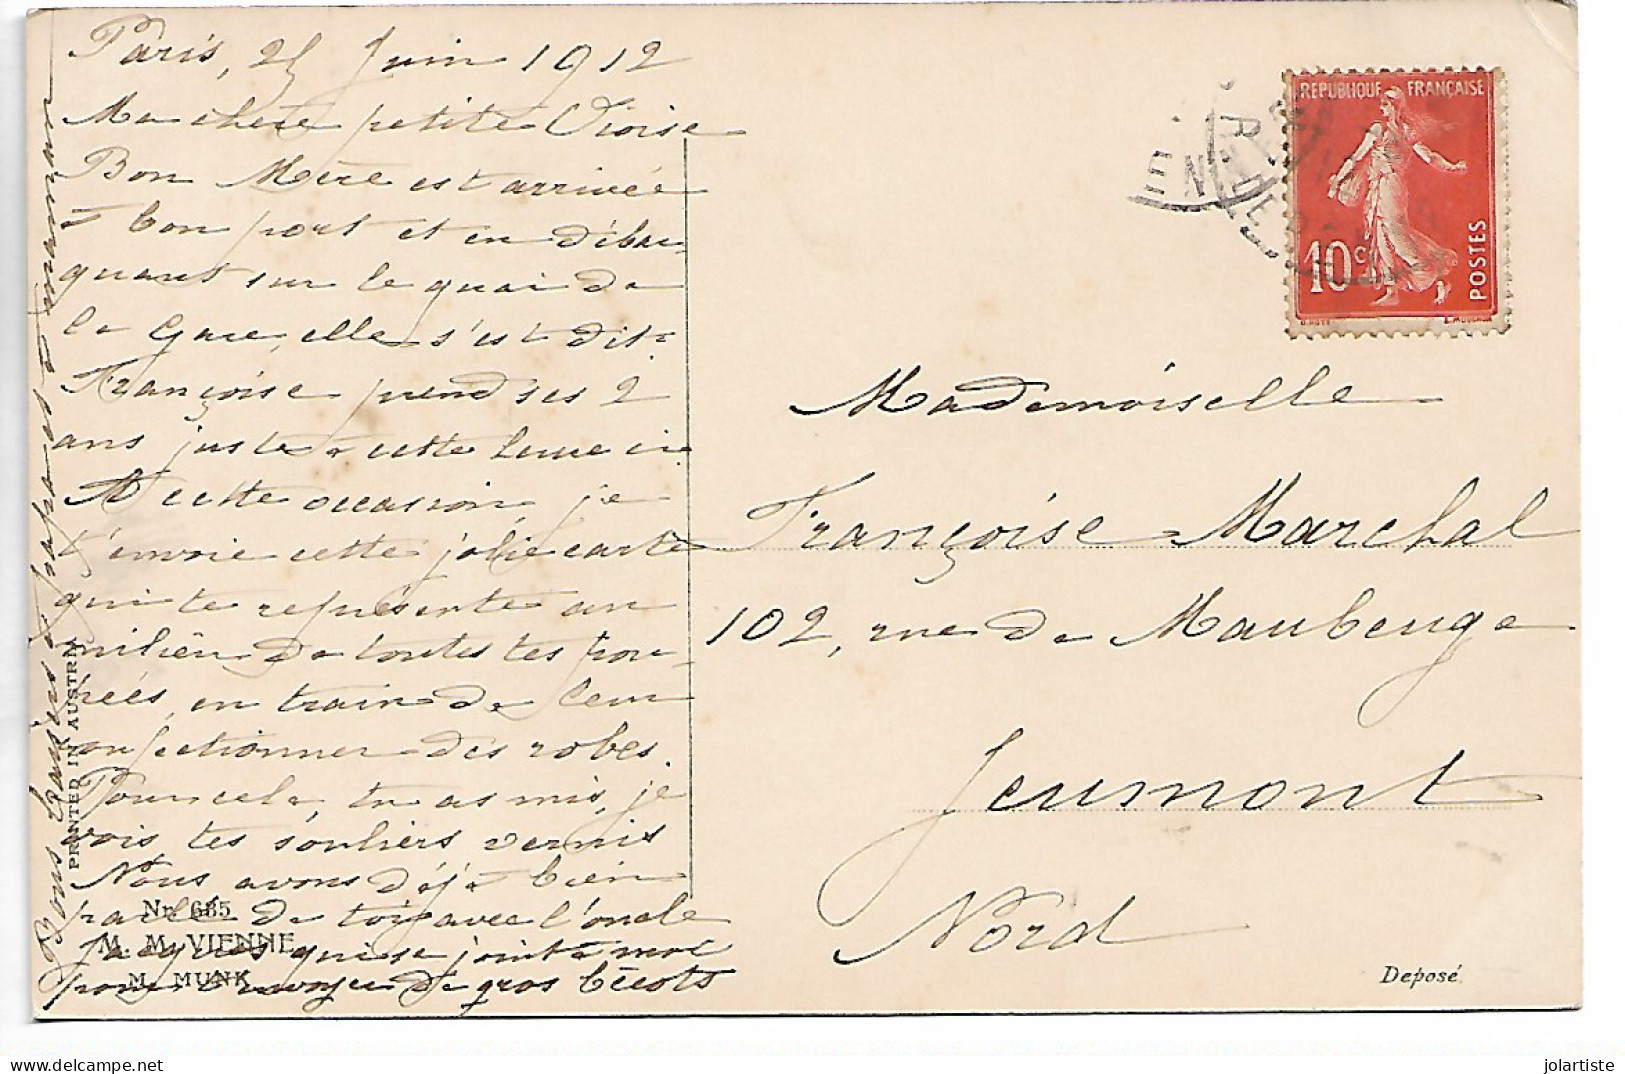 Paris, 25 Juin 1912
Ma chère petite
Bon Mère est arrivée
à bon port et en débar-
quant sur le quai de
la Gare, elle s'est dit:
Françoise prend ses 2
ans juste à cette heure ci.
A cette occasion je
t'envoie cette jolie carte
qui te représente au
milieu de toutes tes pou-
pées, en train de leur
confectionner des robes.
Pour cela tu as mis, je
vois tes souliers vernis
Nous avons déjà bien
parlé de toi avec l'oncle
Jacques qui se joint à moi
pour t'envoyer de gros bécots
Bons baisers à papa et à maman
PRINTED IN AUSTRIA
Nr. 685
M. M. VIENNE
M. MUNK
REPUBLIQUE FRANÇAISE
10c
POSTES
Mademoiselle
Françoise Marchal
102, rue de Maubeuge
Jeumont
Nord
Deposé
delcampe.net
jolartiste